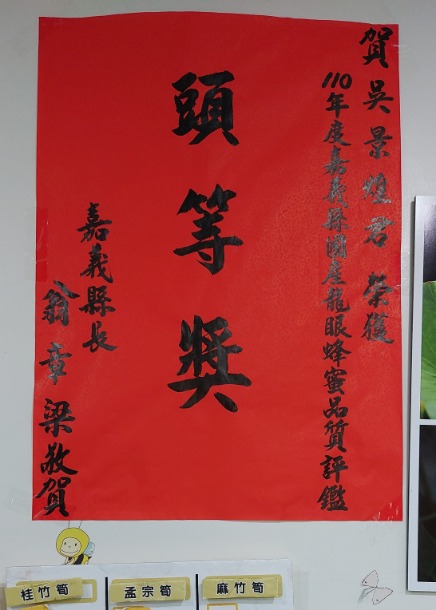 賀吳景煌君榮獲
110年度嘉義縣國產龍眼蜂蜜品質評鑑
頭等獎
嘉義縣長
翁章梁敬賀
桂竹筍
孟宗筍
麻竹筍